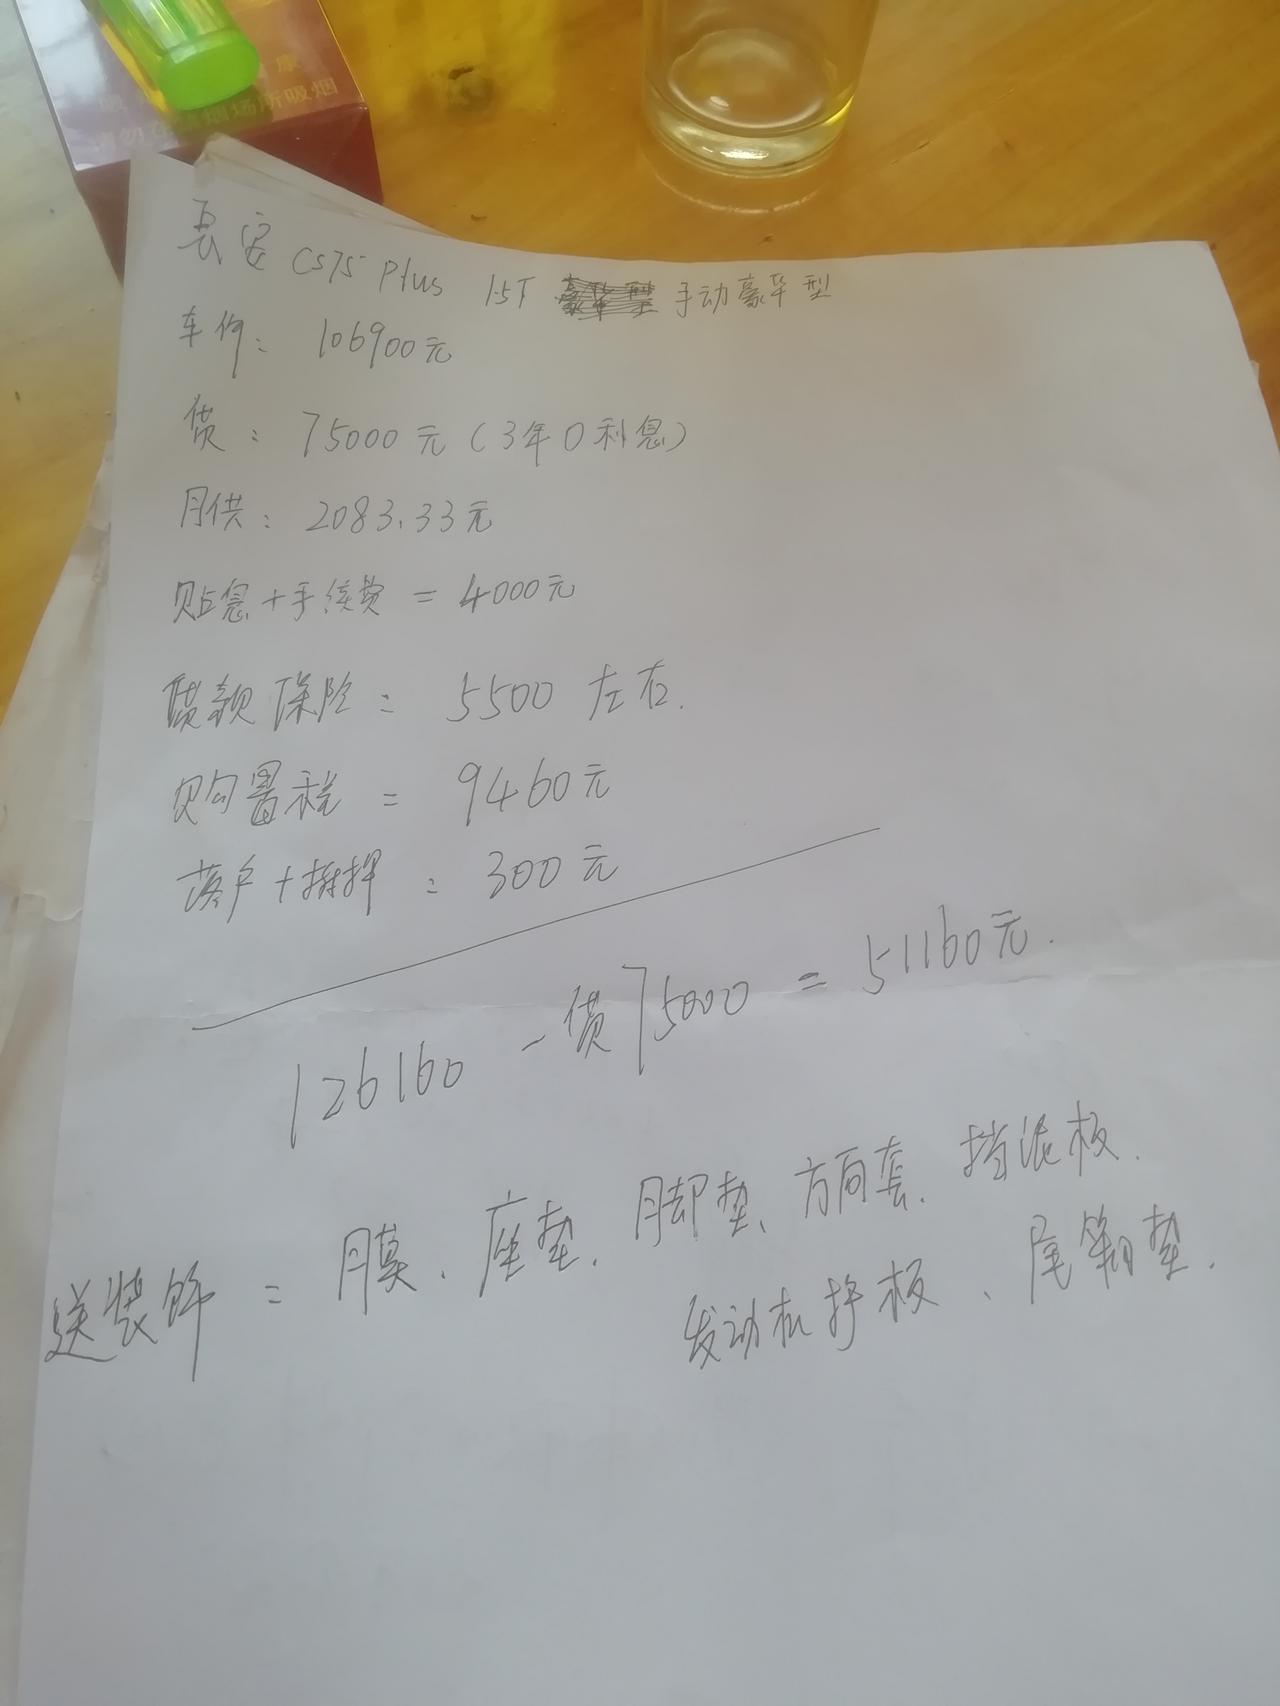 康
请勿在禁烟场所吸烟
长安 CS75 Plus 1.5T 手动豪华型
车价: 106900元
贷: 75000元(3年0利息)
月供: 2083.33元
贴息+手续费 = 4000元
贷款保险 = 5500 左右.
购置税 = 9460元
落户+抵押 = 300元
126160 - 贷75000 = 51160元.
送装饰 = 膜、座垫、脚垫、方向套、挡泥板、
发动机护板、尾箱垫.